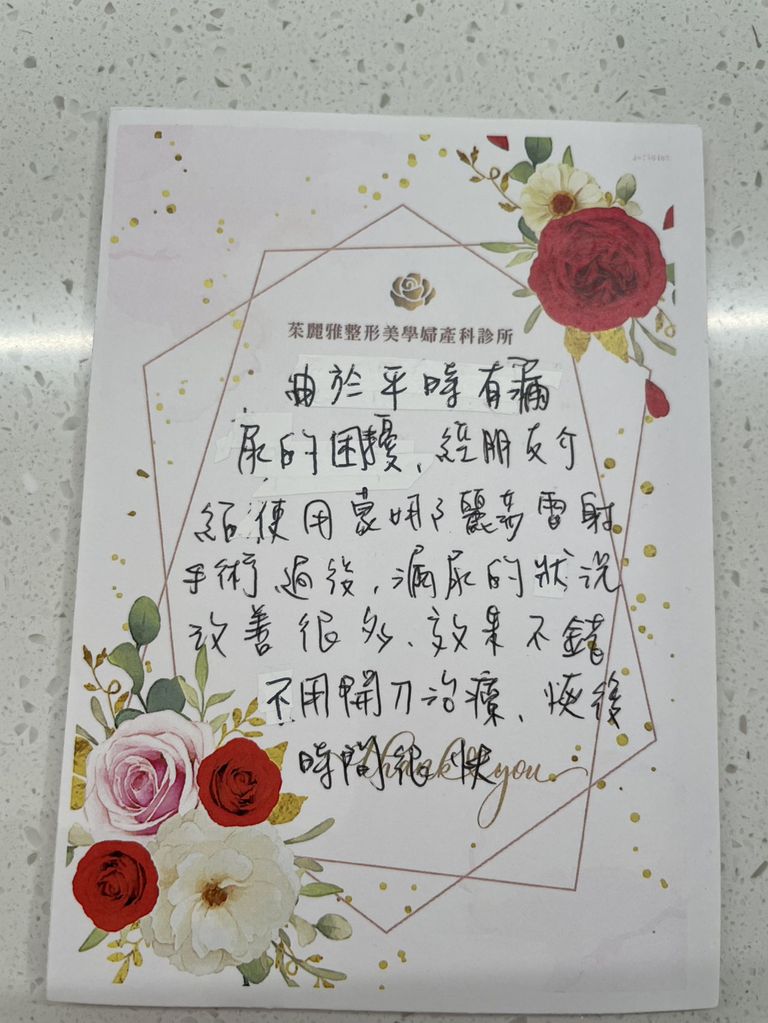 茱麗雅整形美學婦產科診所
由於平時有漏
尿的困擾，經朋友介
紹使用蒙娜麗莎雷射
手術過後，漏尿的狀況
改善很多、效果不錯
不用開刀治療、恢後
時間很快
thank you